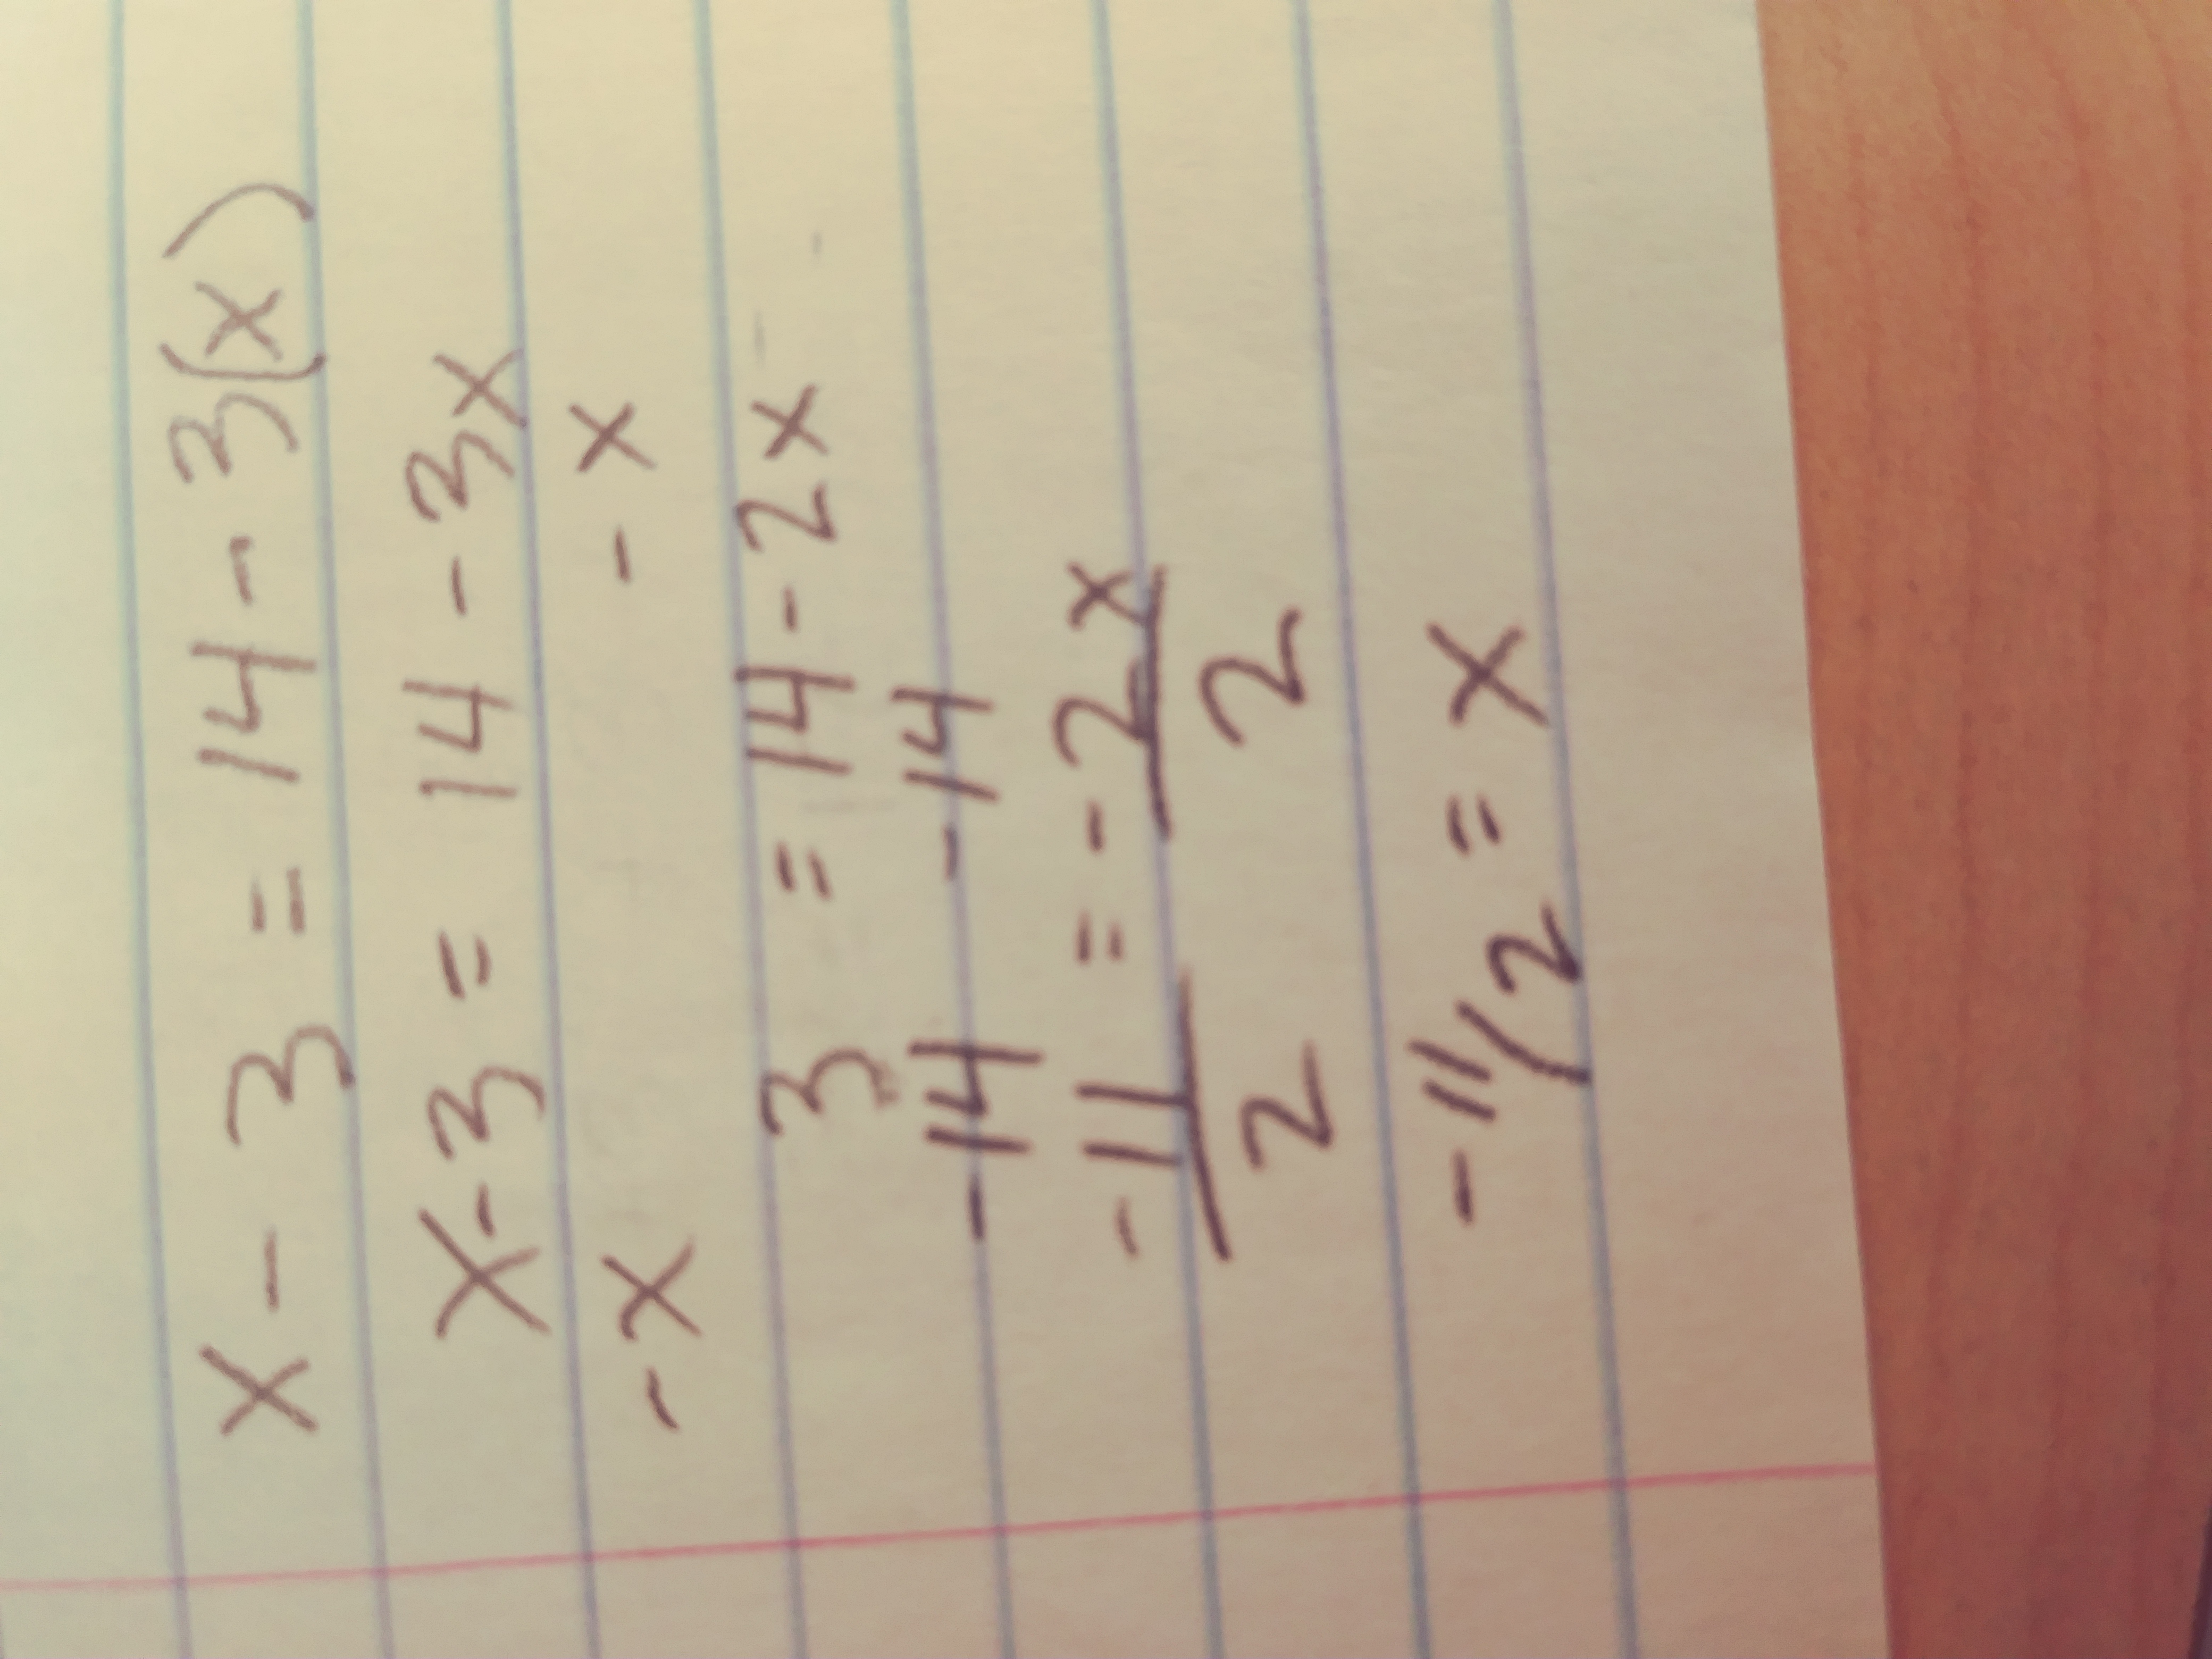 x - 3 = 14 - 3(x)
x - 3 = 14 - 3x
-x - x
3 = 14 - 2x
-14 -14
-11 = -2x
2 2
-11/2 = x